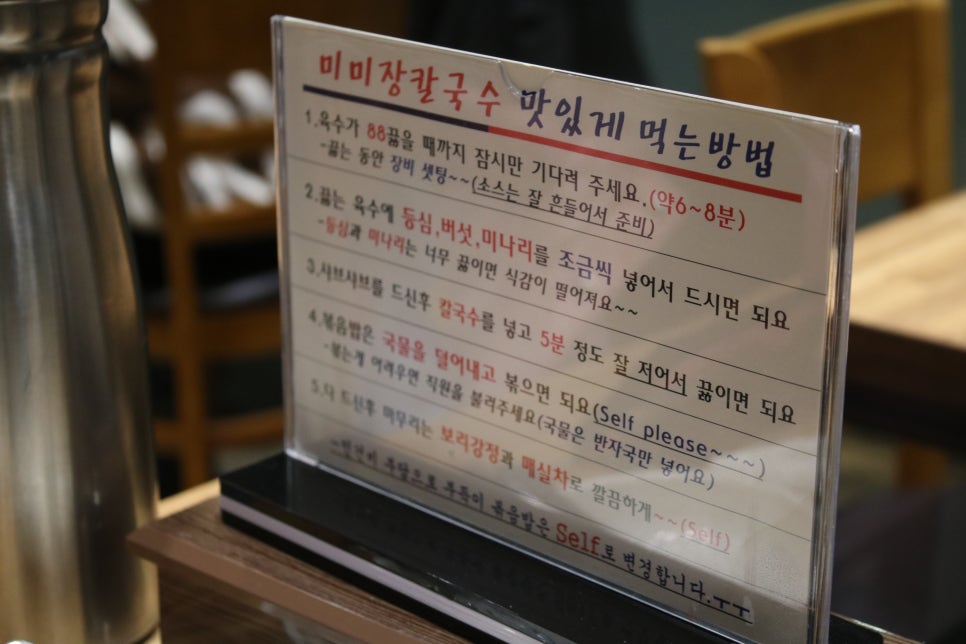 미미장칼국수 맛있게 먹는방법
1.육수가 88끓을 때까지 잠시만 기다려 주세요.(약6~8분)
-끓는 동안 장비 셋팅~~(소스는 잘 흔들어서 준비)
2.끓는 육수에 등심,버섯,미나리를 조금씩 넣어서 드시면 되요
-등심과 미나리는 너무 끓이면 식감이 떨어져요~~
3.샤브샤브를 드신후 칼국수를 넣고 5분 정도 잘 저어서 끓이면 되요
4.볶음밥은 국물을 덜어내고 볶으면 되요(Self please~~~)
-볶는게 어려우면 직원을 불러주세요(국물은 반자국만 넣어요)
5.다 드신후 마무리는 보리강정과 매실차로 깔끔하게~~(Self)
부담으로 부득이 볶음밥은 Self로 변경합니다.ㅜㅜ